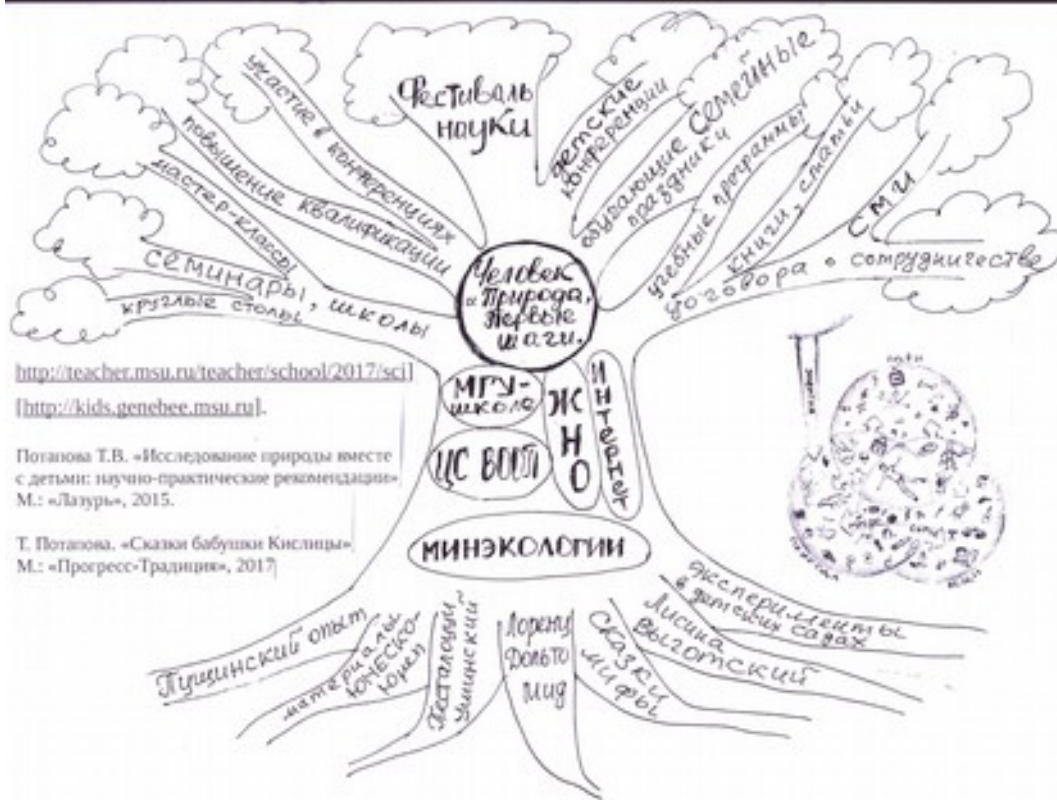 участие в конференциях
повышение квалификации
мастер-классы
семинары, школы
круглые столы
Фестиваль
науки
детские
конференции
обучающие семейные
праздники
учебные программы
книги, статьи
СМИ
договора о сотрудничестве
Человек
и Природа,
Первые
шаги.
МГУ-
школе
ЖНО
Интернет
ЦС ВОП
МИНЭКОЛОГИИ
http://teacher.msu.ru/teacher/school/2017/sci]
[http://kids.genebee.msu.ru].
Потапова Т.В. «Исследование природы вместе
с детьми: научно-практические рекомендации»
М.: «Лазурь», 2015.
Т. Потапова. «Сказки бабушки Кислицы»
М.: «Прогресс-Традиция», 2017
Пущинский опыт
материалы
ЮНЕСКО-
Юнеп
Песталоцци
Ушинский
Лоренц
Дольто
Мид
Сказки
мифы
Лисина
Выготский
эксперименты
в детских садах